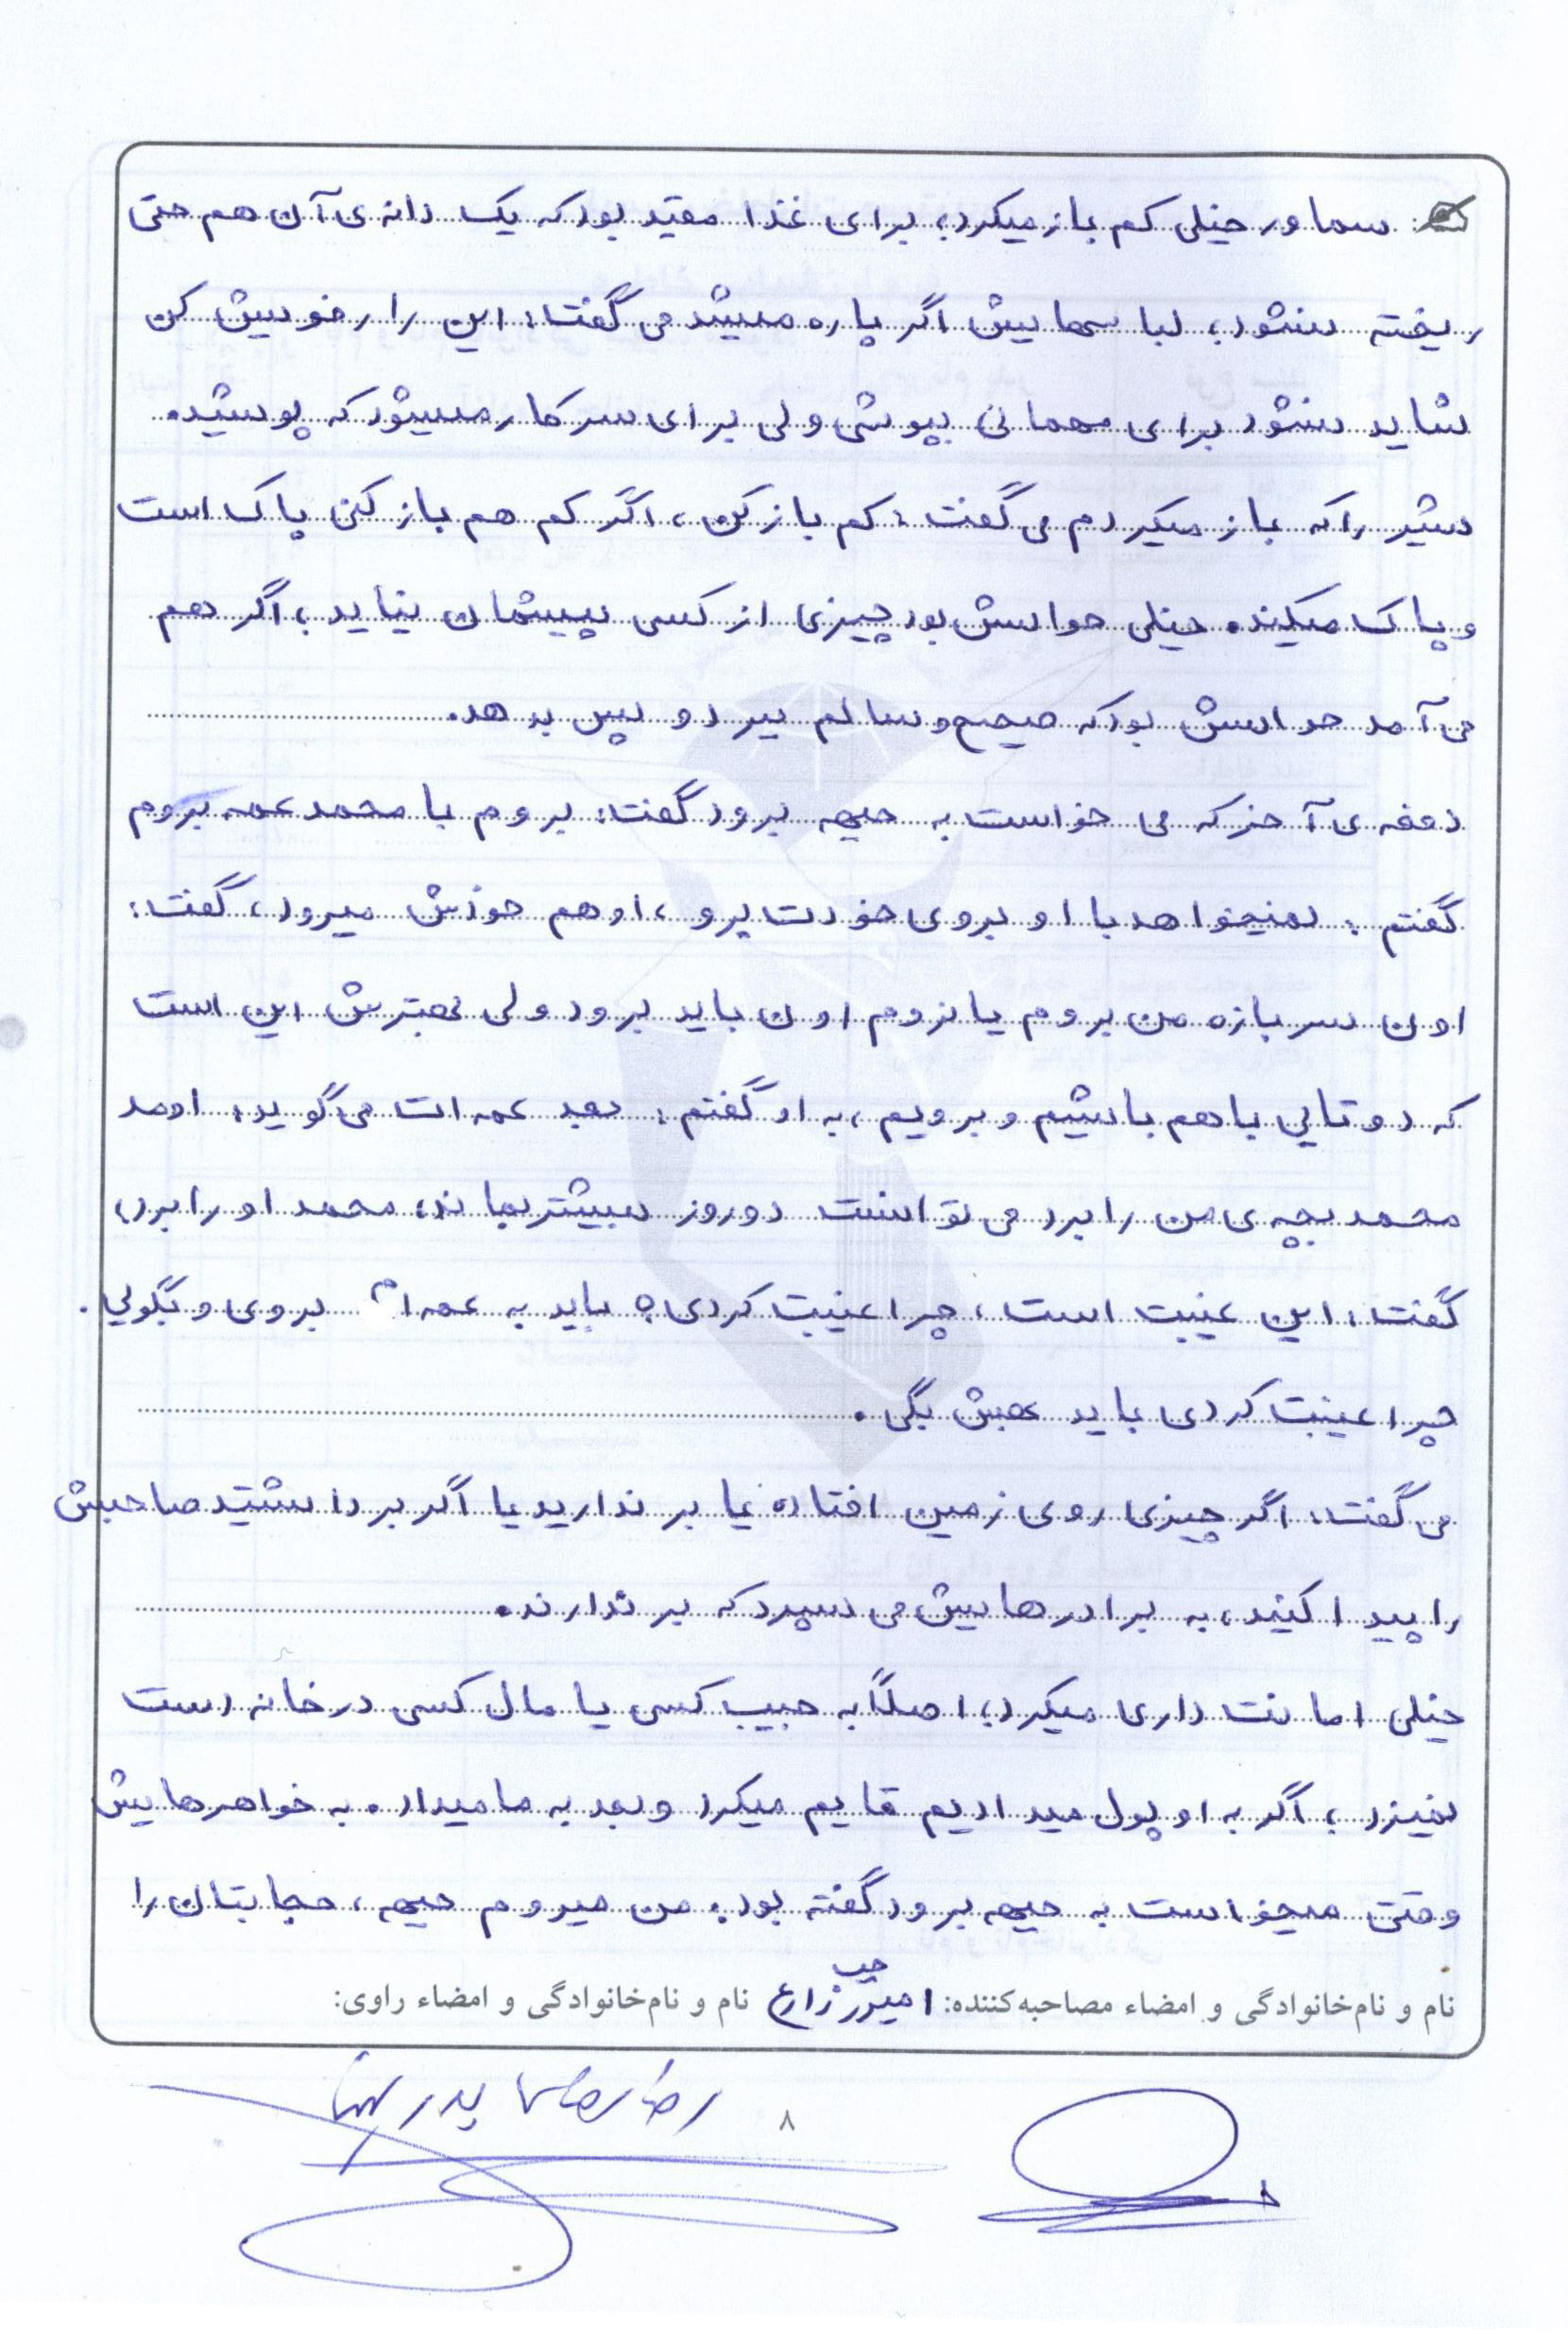 سماور خیلی کم باز میکرد؛ برای غذا مقید بود که یک دانه‌ی آن هم حتی
ریخته نشود؛ لباسهایش اگر پاره میشد می گفت: این را رفویش کن
شاید نشود برای مهمانی بپوشی ولی برای سر کار میشود که پوشید.
شیر را که باز میکردم می گفت: کم باز کن، اگر کم هم باز کنی پاک است
و پاک میکند. خیلی حواسش بود چیزی از کسی پیشمان نیاید؛ اگر هم
می آمد حواسش بود که صحیح و سالم ببرد و پس بدهد.
دفعه ی آخر که می خواست به جبهه برود گفت: بروم با محمد عمه بروم
گفتم: نمیخواهد با او بروی خودت برو، او هم خودش میرود، گفت:
اون سربازه من بروم یا نروم اون باید برود ولی بهترش این است
که دوتایی با هم باشیم و برویم، به او گفتم: بعد عمه ات می گوید: اومد
محمد بچه ی من را برد می توانست دو روز بیشتر بماند؛ محمد او را برد،
گفت: این غیبت است، چرا غیبت کردی؟ باید به عمه ام بروی و بگویی.
چرا غیبت کردی باید بهش بگی.
می گفت: اگر چیزی روی زمین افتاده یا بر ندارید یا اگر برداشتید صاحبش
را پیدا کنید، به برادرهایش می سپرد که بر ندارند.
خیلی امانت داری میکرد؛ اصلاً به جیب کسی یا مال کسی در خانه دست
نمیزد؛ اگر به او پول میدادیم قایم میکرد و بعد به ما میداد. به خواهرهایش
وقتی میخواست به جبهه برود گفته بود: من میروم جبهه، حجابتان را
نام و نام‌خانوادگی و امضاء مصاحبه‌کننده: امیر زارع نام و نام‌خانوادگی و امضاء راوی:
رضا پدر
۸